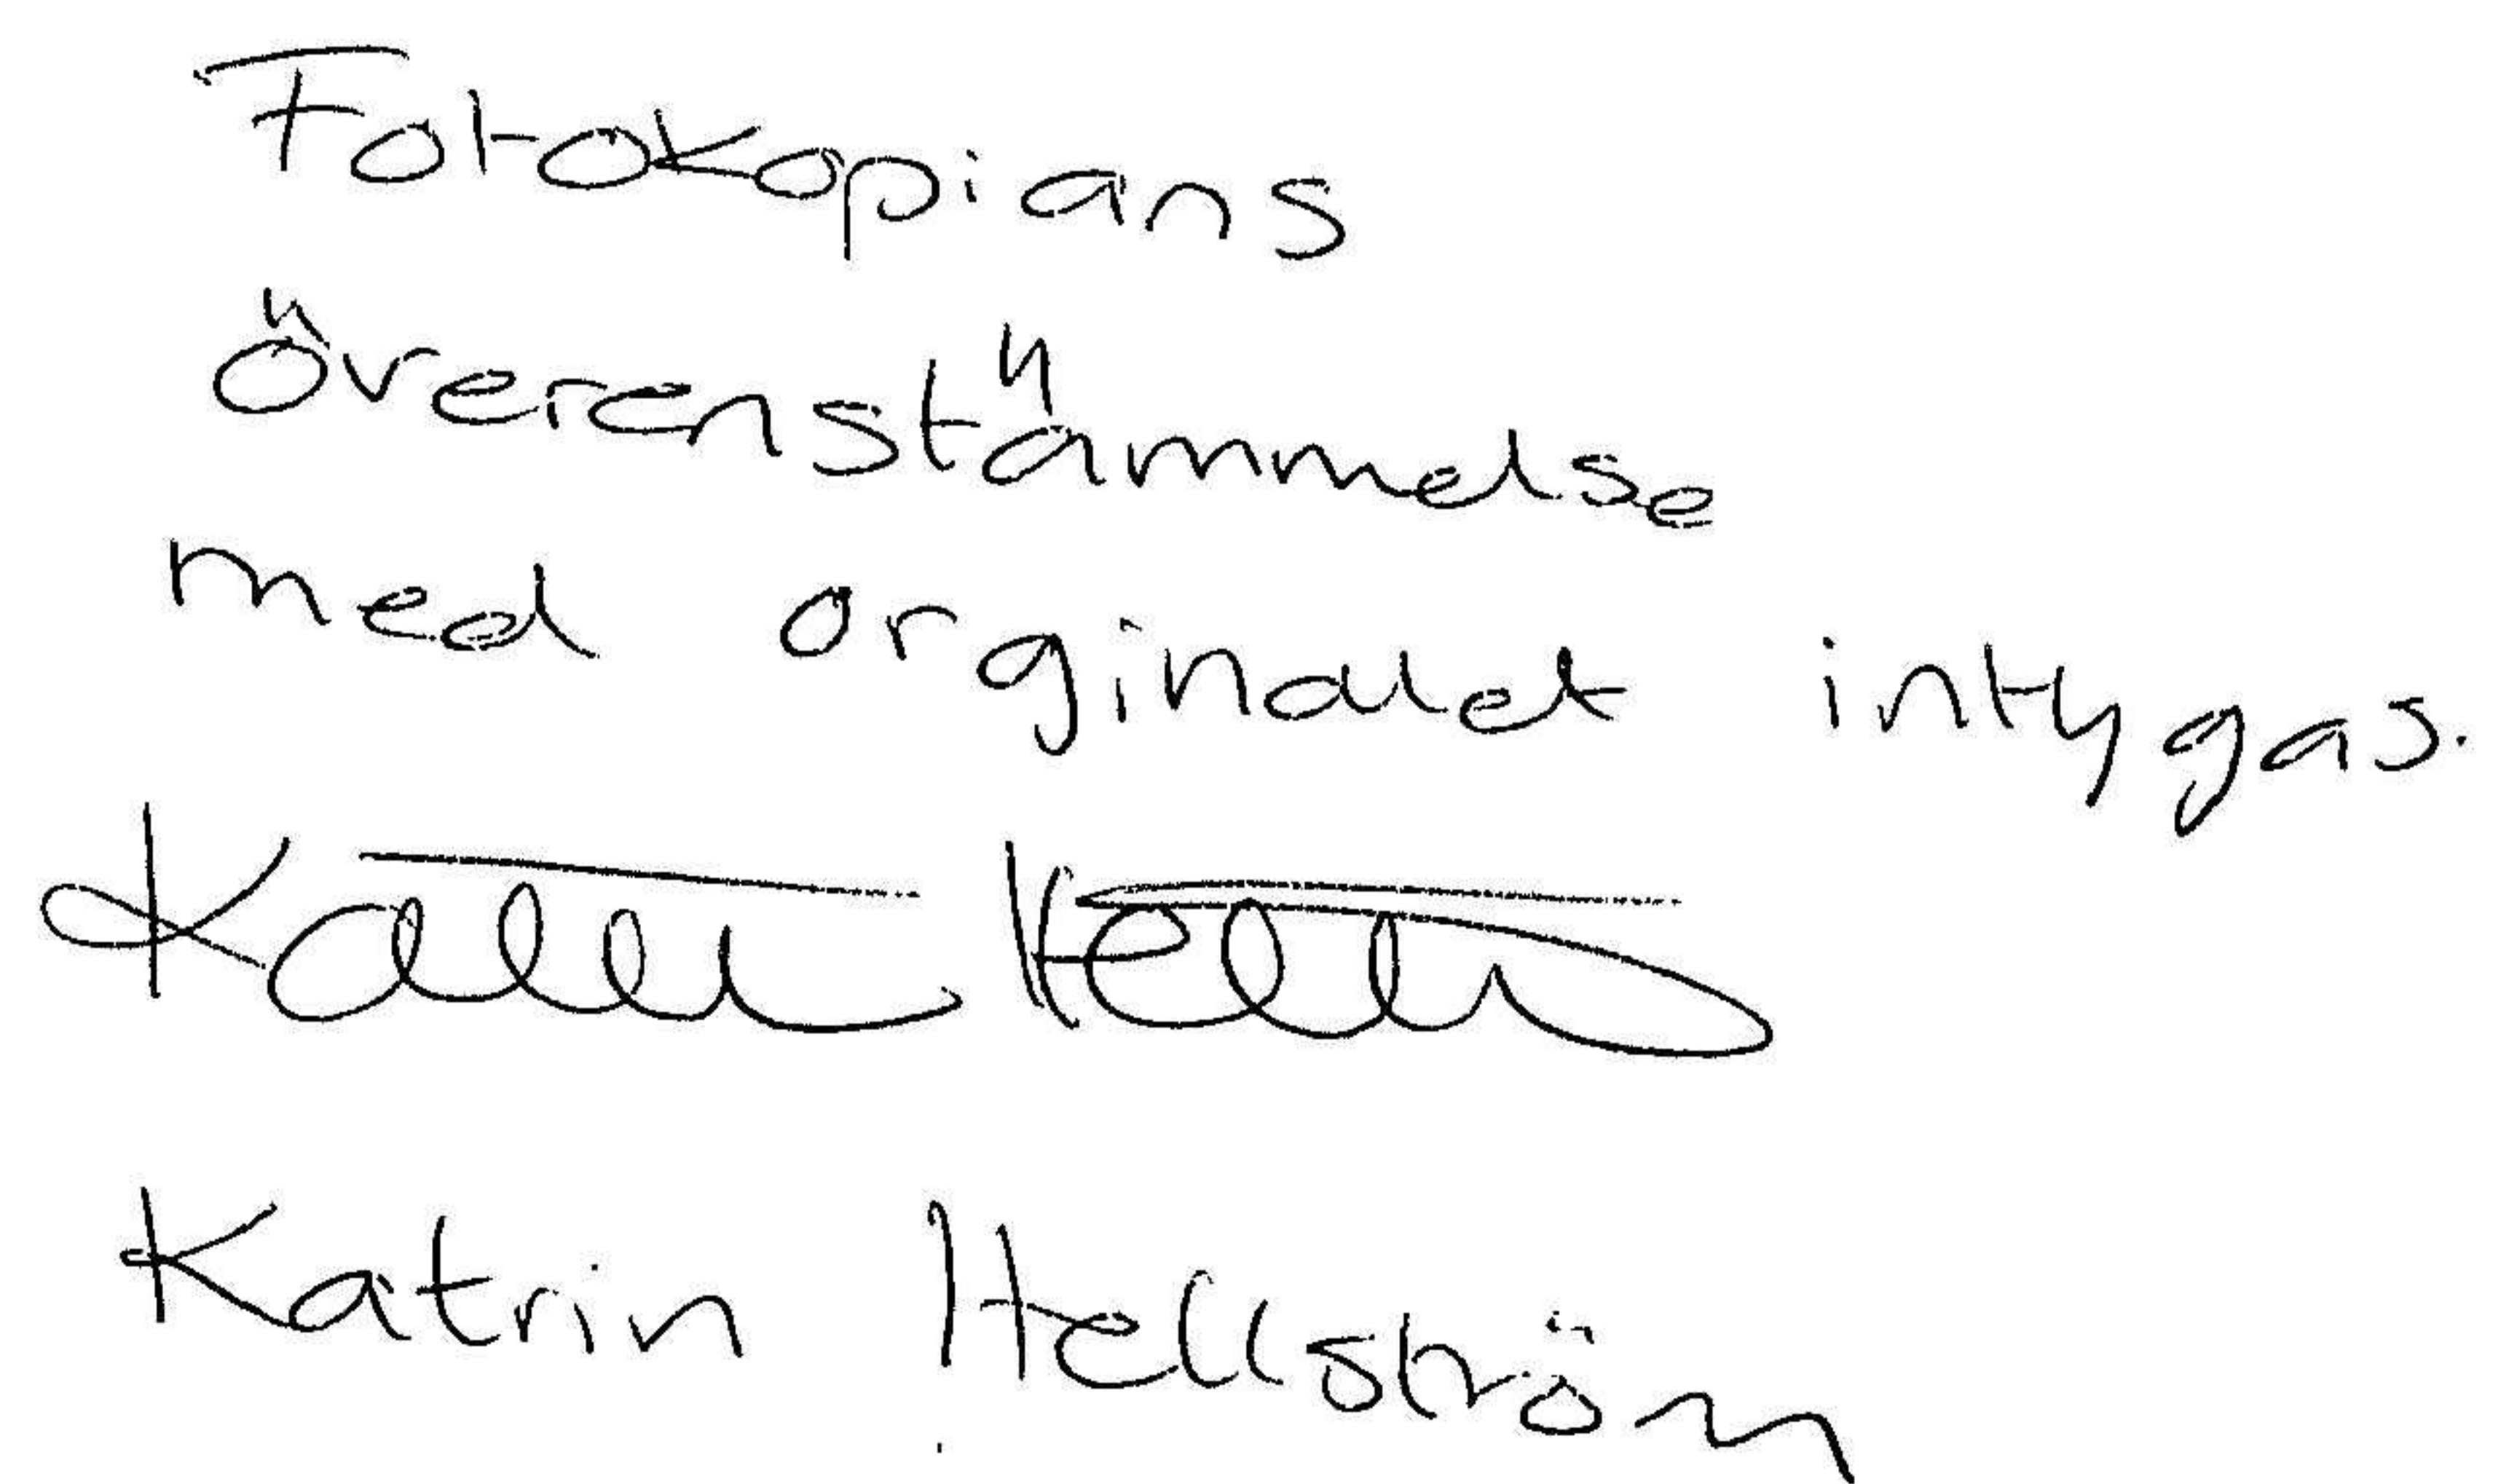 Fotokopians
överenstämmelse
med orginalet intygas.
Katrin Hellström